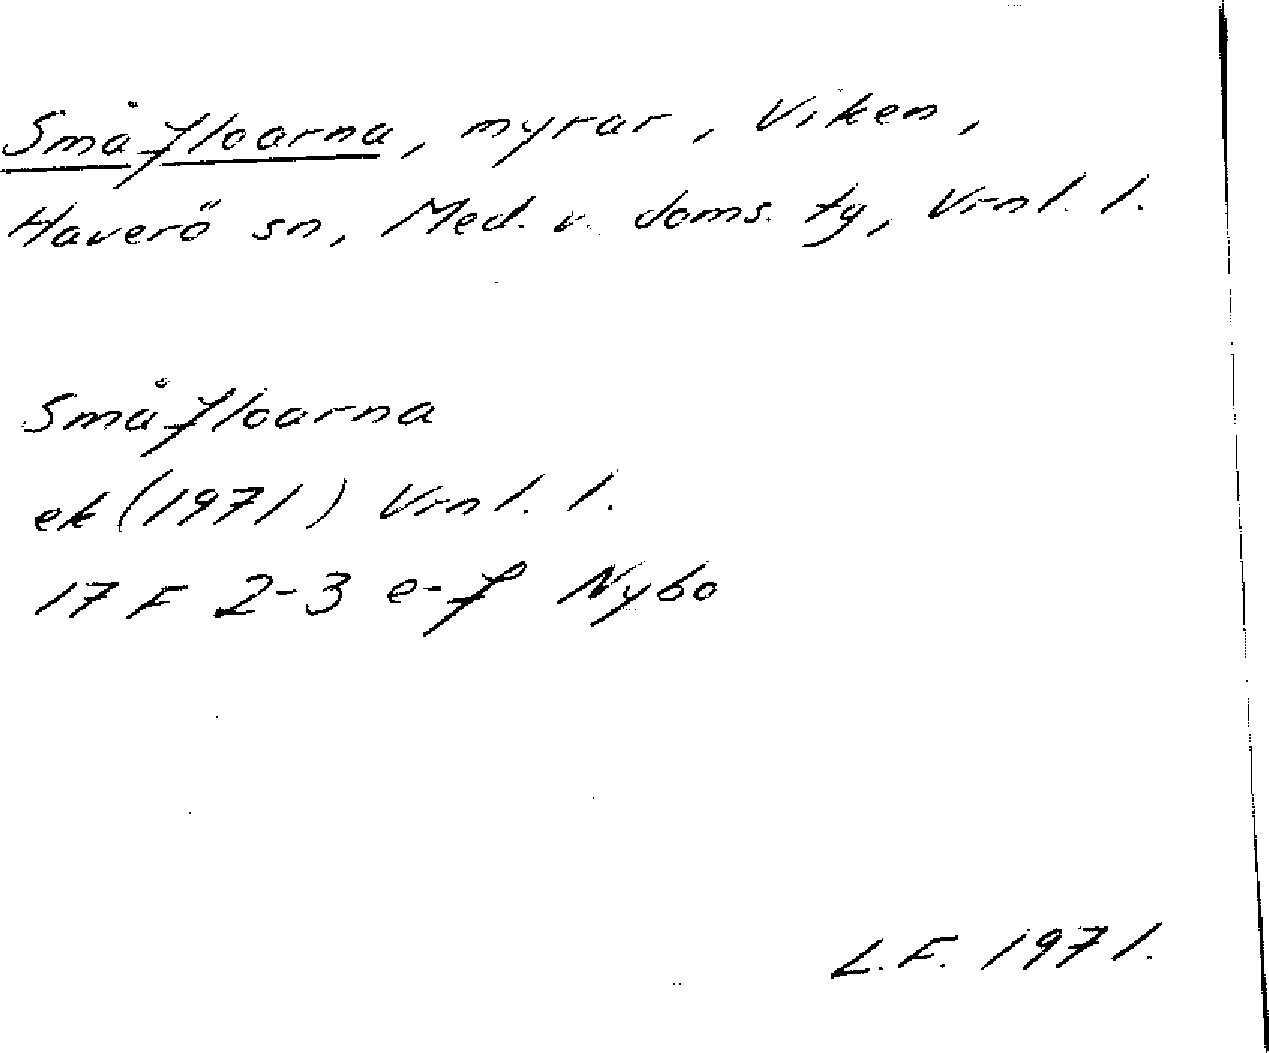 Småfloarna, myrar, Viken,
Haverö sn, Med. v. doms. tg, Vrnl. l.
Småfloarna
ek (1971) Vrnl. l.
17 F 2-3 e-f Nybo
L.F. 1971.